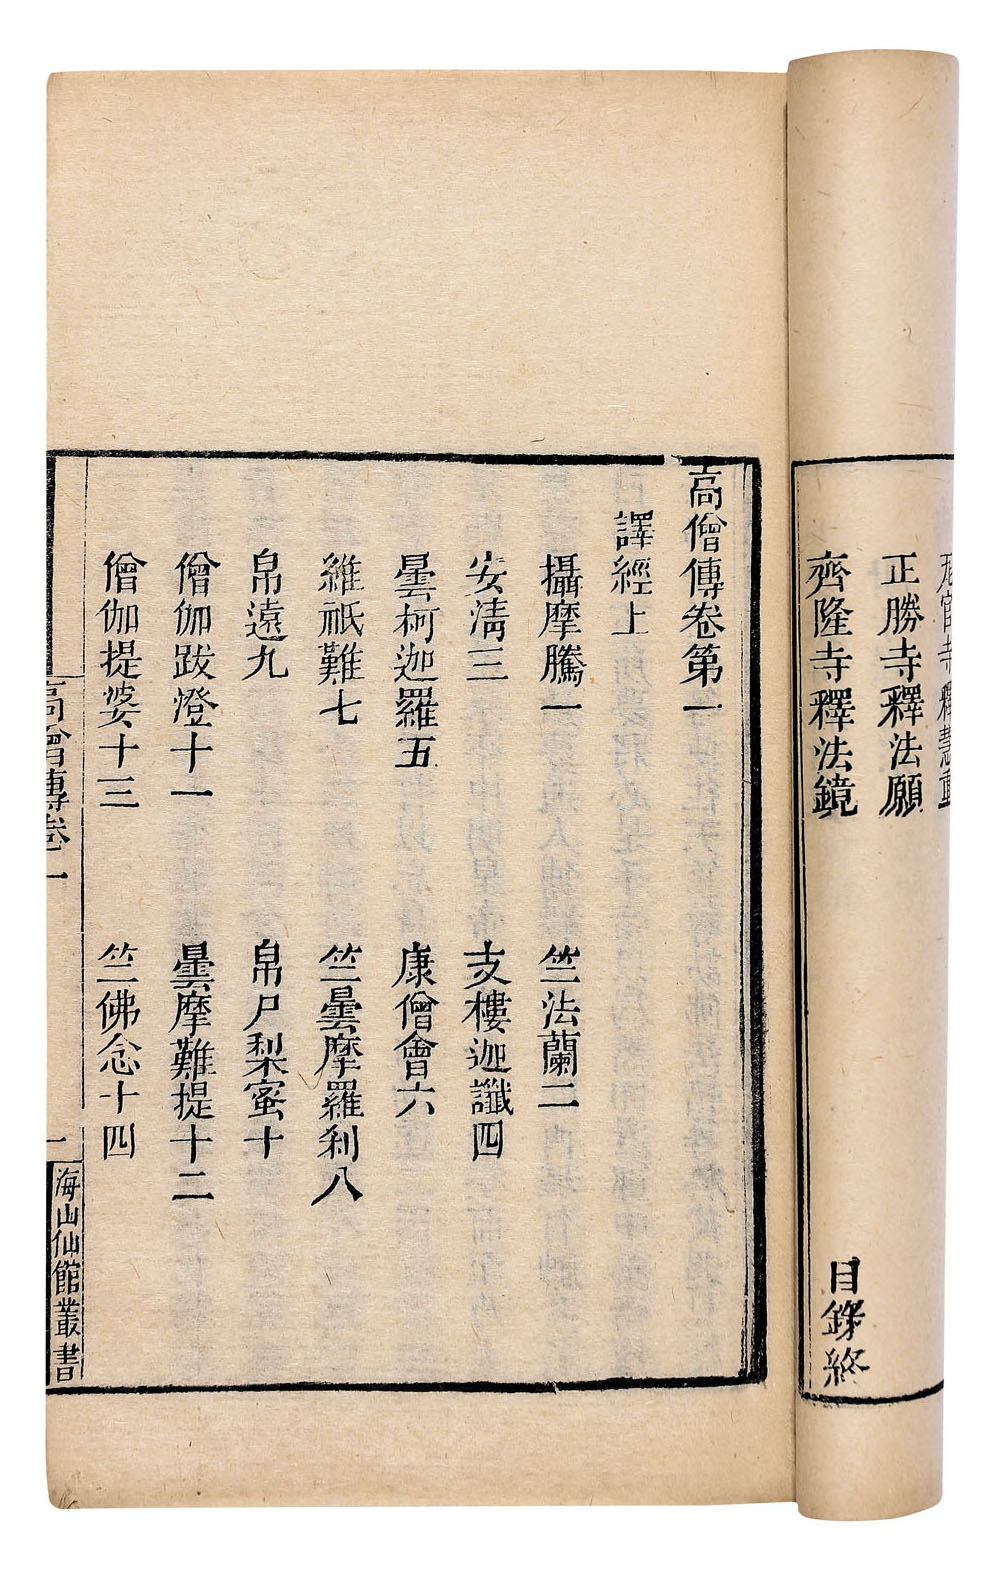 瓦官寺釋慧重
正勝寺釋法願
齊隆寺釋法鏡
目錄終
高僧傳卷第一
譯經上
攝摩騰一 竺法蘭二
安清三 支樓迦讖四
曇柯迦羅五 康僧會六
維祇難七 竺曇摩羅剎八
帛遠九 帛尸梨蜜十
僧伽跋澄十一 曇摩難提十二
僧伽提婆十三 竺佛念十四
高僧傳卷一 一 海山仙館叢書